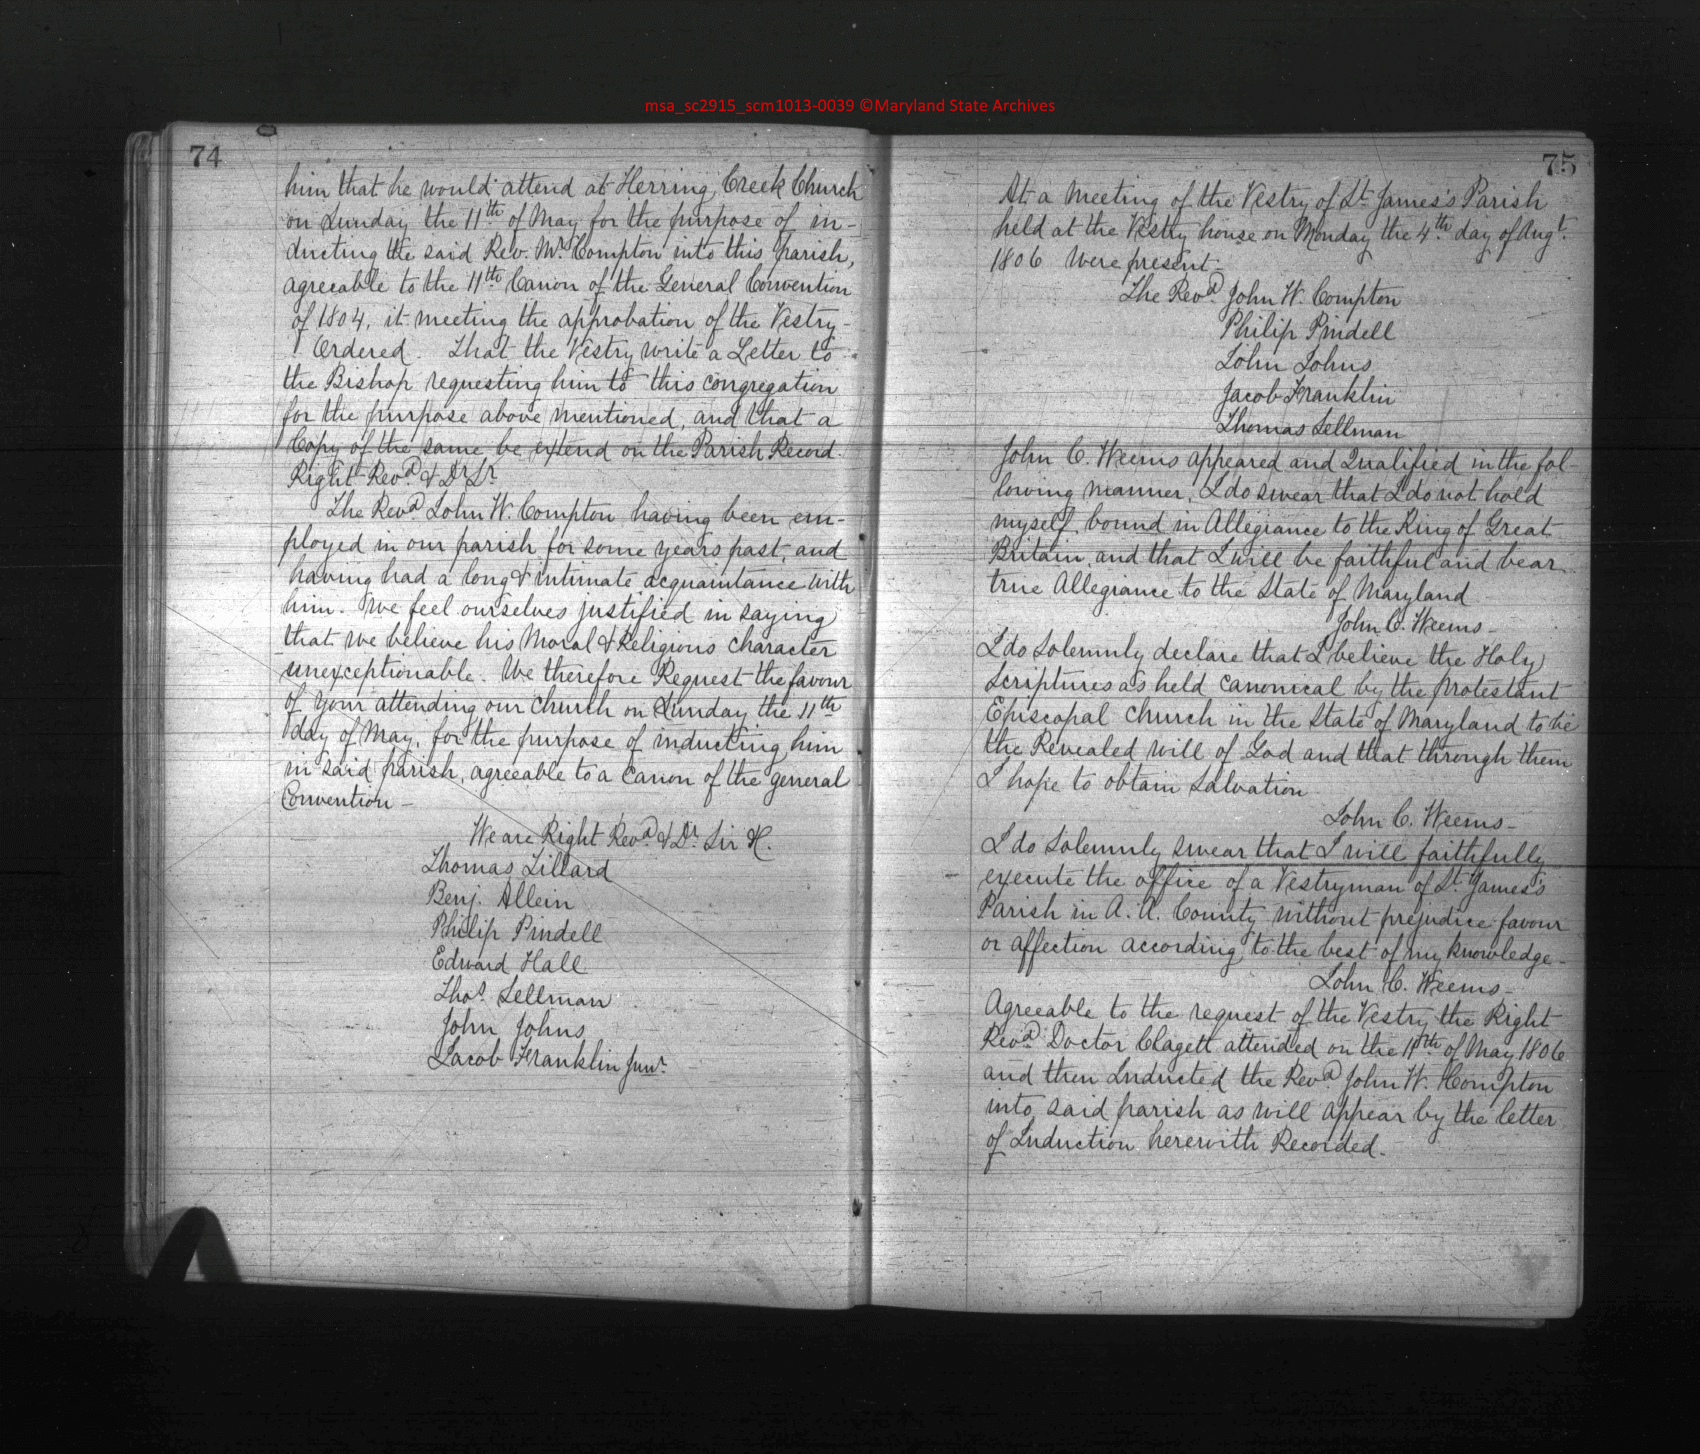 msa_sc2915_scm1013-0039 ©Maryland State Archives
74
him that he would attend at Herring Creek Church
on Sunday the 11th of May for the purpose of in-
ducting the said Rev. Mr. Compton into this parish,
agreeable to the 11th Canon of the General Convention
of 1804, it meeting the approbation of the Vestry-
Ordered. That the Vestry write a Letter to
the Bishop requesting him to this congregation
for the purpose above mentioned, and that a
Copy of the same be extend on the Parish Record.
Right Revd. & Dr Sr
The Revd. John W. Compton having been em-
ployed in our parish for some years past, and
having had a long & intimate acquaintance with
him. We feel ourselves justified in saying
that we believe his Moral & Religious character
unexceptionable. We therefore Request the favour
of your attending our church on Sunday the 11th
day of May, for the purpose of inducting him
in said parish, agreeable to a Canon of the general
Convention -
We are Right Revd. & Dr. Sir &.
Thomas Tillard
Benj. Allein
Philip Pindell
Edward Hall
Thos. Sellman
John Johns
Jacob Franklin Junr.
75
At a Meeting of the Vestry of St. James's Parish
held at the Vestry house on Monday the 4th. day of Augt.
1806 were present-
The Revd. John W. Compton
Philip Pindell
John Johns
Jacob Franklin
Thomas Sellman
John C. Weems appeared and Qualified in the fol-
lowing manner, I do swear that I do not hold
myself bound in Allegiance to the King of Great
Britain, and that I will be faithful and bear
true Allegiance to the State of Maryland
John C. Weems-
I do Solemnly declare that I believe the Holy
Scriptures as held canonical by the protestant
Episcopal church in the State of Maryland to be
the Revealed will of God and that through them
I hope to obtain Salvation
John C. Weems-
I do Solemnly swear that I will faithfully
execute the office of a Vestryman of St. James's
Parish in A. A. County without prejudice favour
or affection according to the best of my knowledge-
John C. Weems-
Agreeable to the request of the Vestry the Right
Revd. Doctor Clagett attended on the 11th of May 1806
and then Inducted the Revd John W. Compton
into said parish as will appear by the letter
of Induction herewith Recorded.